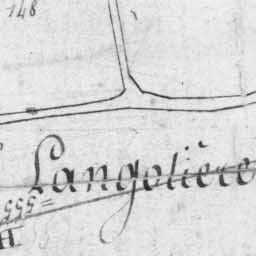 148
Langolière
=555